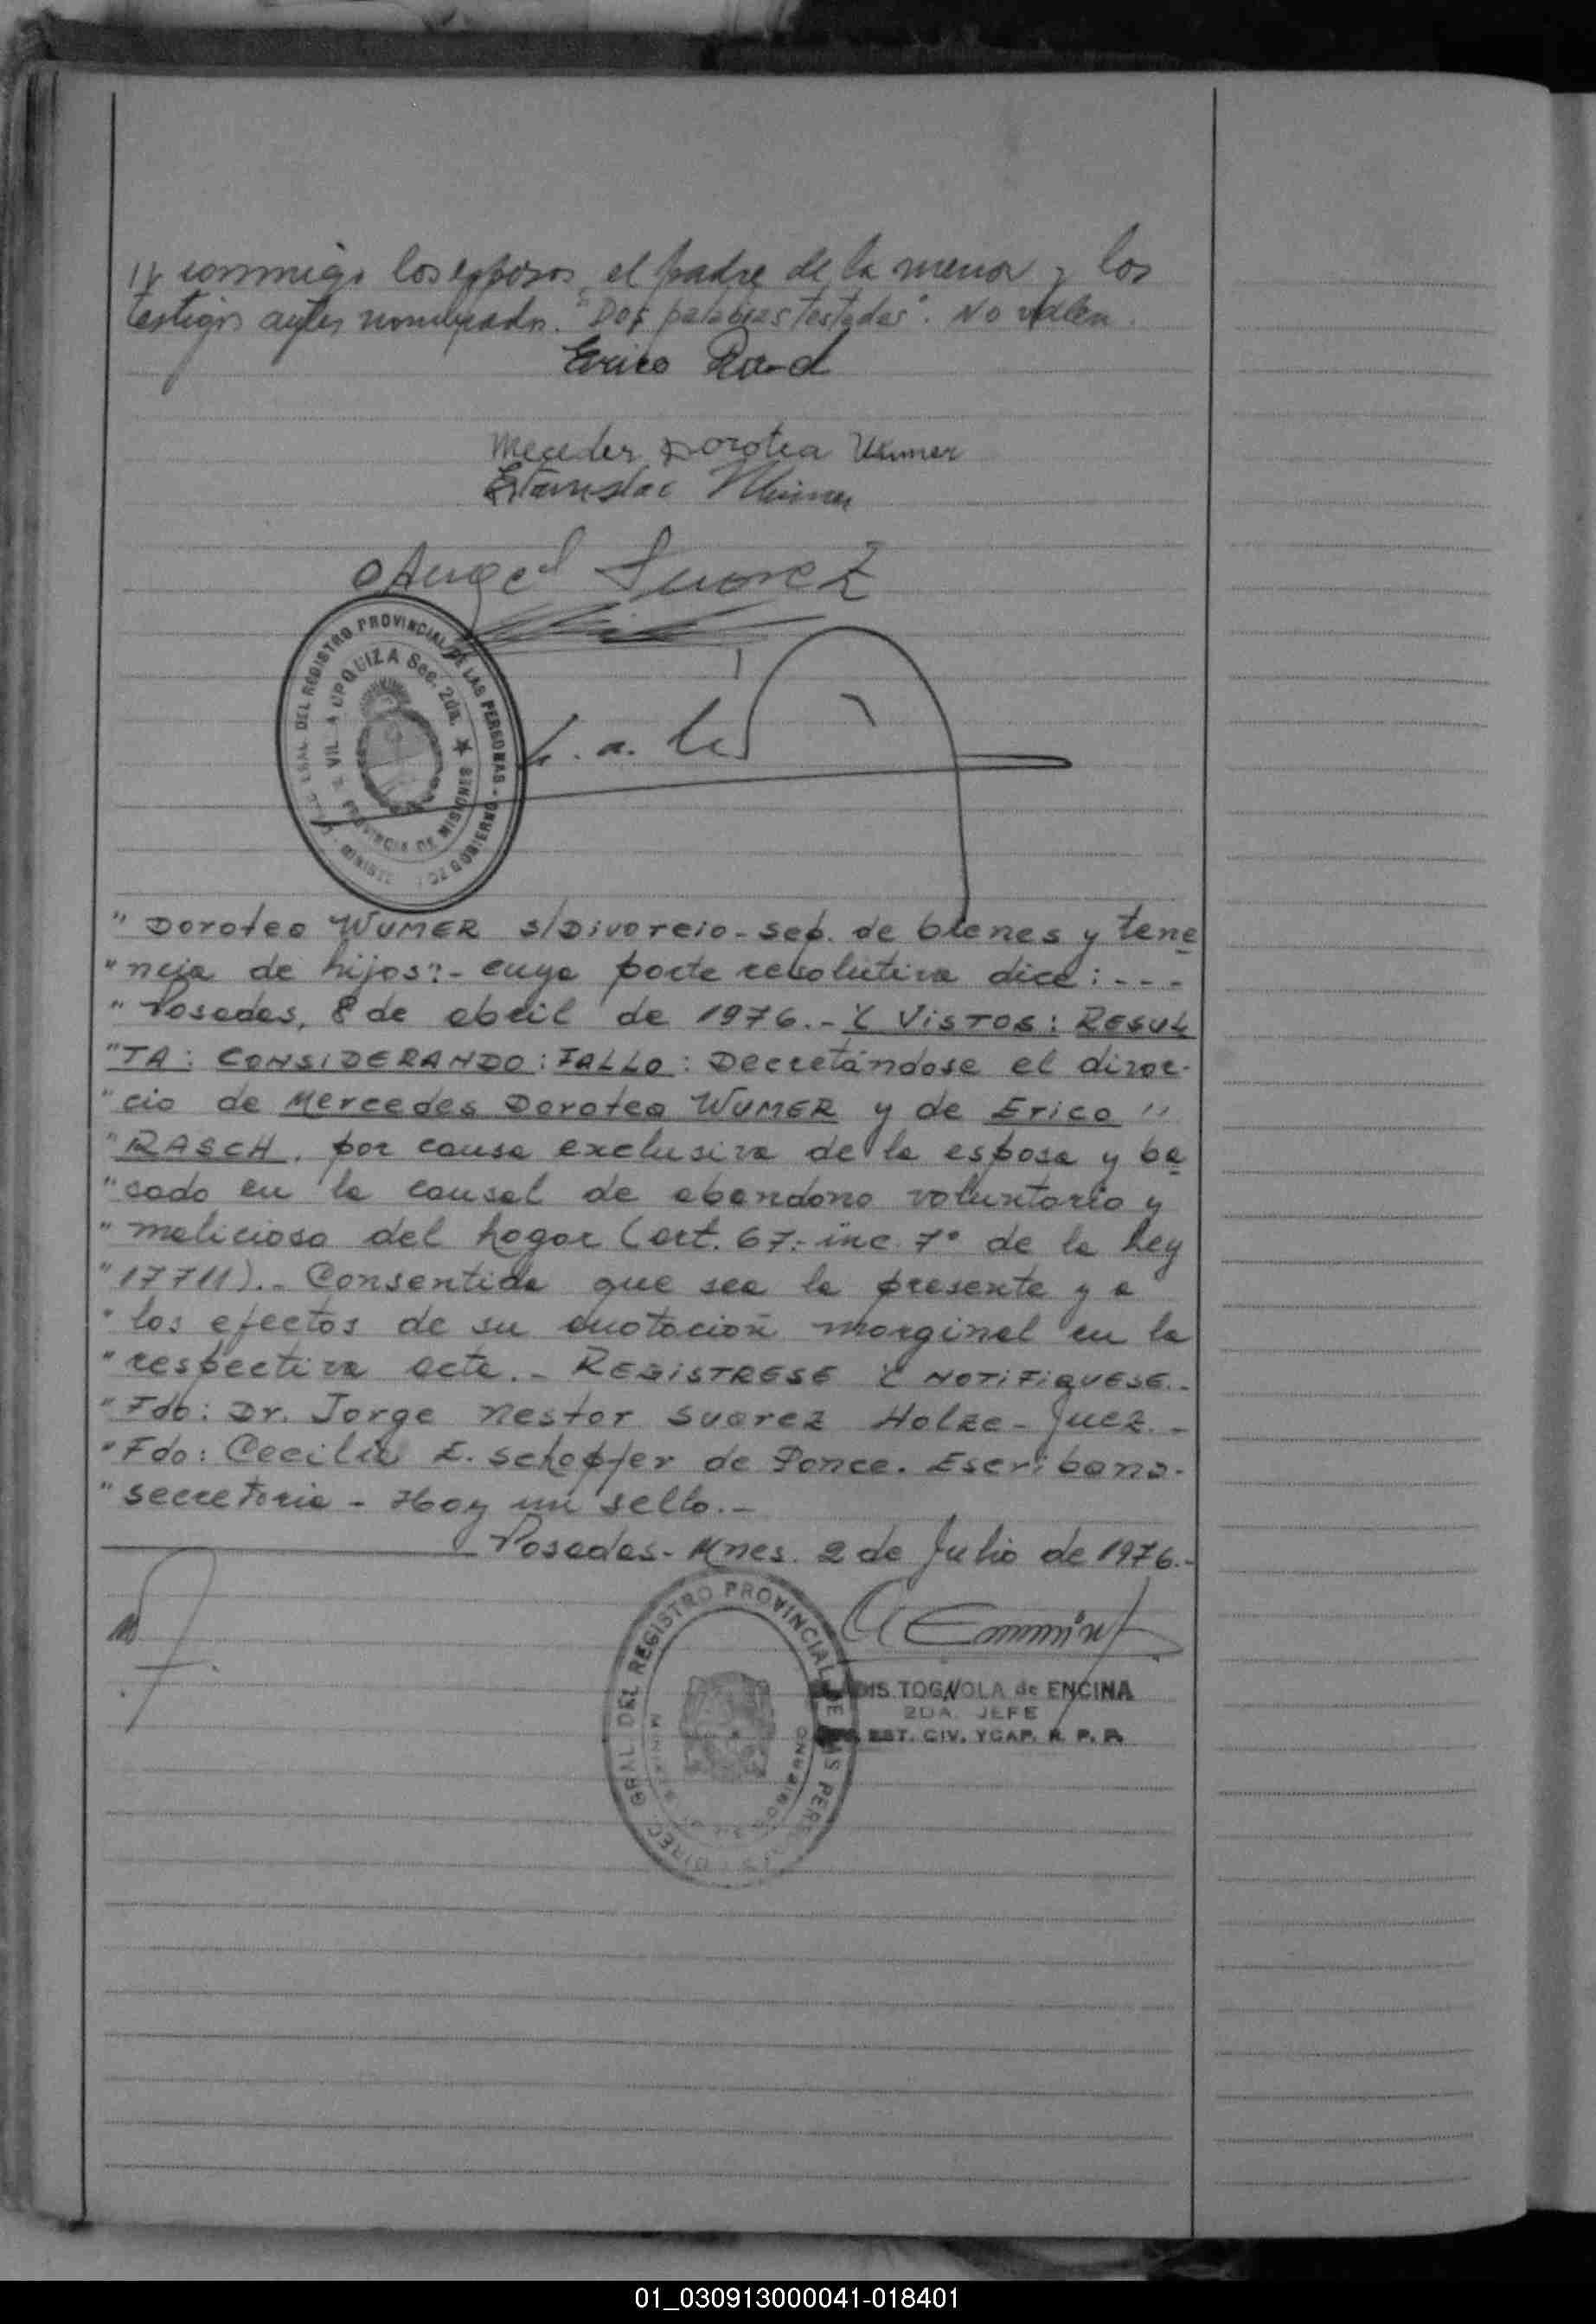 conmigo los esposos, el padre de la menor y los
testigos antes nombrados. "Dos palabras testadas". No valen.
Erico
Mercedes Dorotea Wumer
Estanislao
Angel Suarez
DEL REGISTRO PROVINCIAL DE LAS PERSONAS - GOBIERNO
VILLA URQUIZA Sec. 2da. ★ PROVINCIA DE MISIONES
" Dorotea WUMER s/Divorcio - sep. de bienes y tene
" ncia de hijos": - cuya parte resolutiva dice: - - -
" Posadas, 8 de abril de 1976. - Y VISTOS: RESUL
" TA: CONSIDERANDO: FALLO: Decretándose el divor-
" cio de Mercedes Dorotea WUMER y de Erico "
" RASCH, por causa exclusiva de la esposa y ba
" sado en la causal de abandono voluntario y
" malicioso del hogar (art. 67 - inc. 7° de la ley
" 17711). - Consentida que sea la presente y a
" los efectos de su anotación marginal en la
" respectiva acta. - REGISTRESE Y NOTIFIQUESE. -
" Fdo: Dr. Jorge Nestor Suarez Holze - Juez. -
" Fdo: Cecilia E. Schopfer de Ponce. Escribana -
" secretaria - Hay un sello. -
Posadas - Mnes. 2 de Julio de 1976. -
DIREC. GRAL. DEL REGISTRO PROVINCIAL DE LAS PERS
TOGNOLA de ENCINA
2DA. JEFE
EST. CIV. YCAP. R. P. P.
01_030913000041-018401